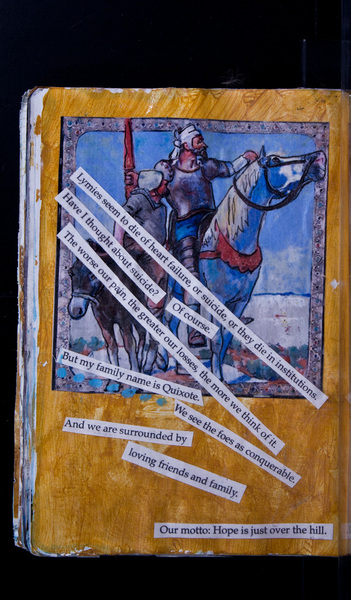 Lymies seem to die of heart failure, or suicide, or they die in institutions.
Have I thought about suicide?
Of course.
The worse our pain, the greater our losses, the more we think of it.
But my family name is Quixote.
We see the foes as conquerable.
And we are surrounded by
loving friends and family.
Our motto: Hope is just over the hill.